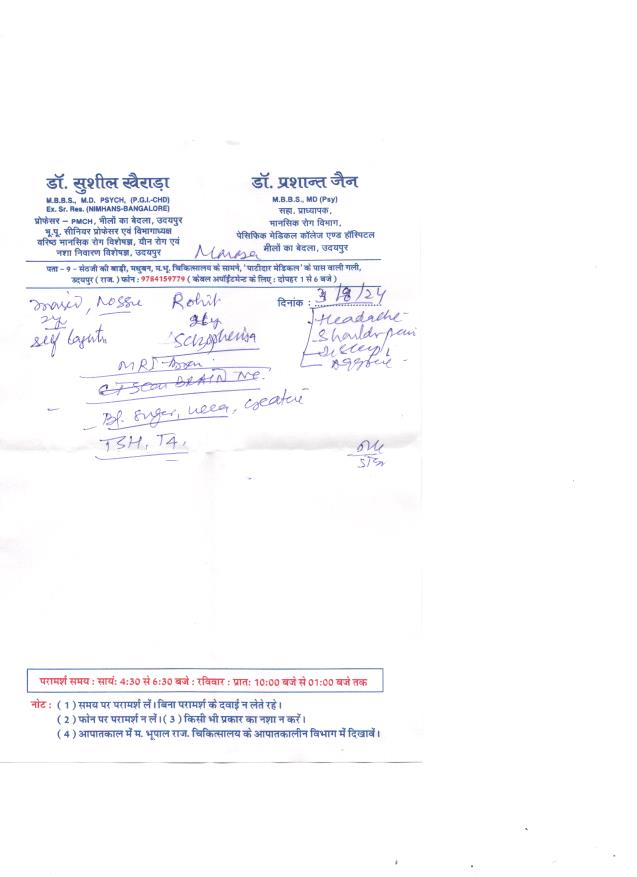 डॉ. सुशील खैराड़ा
M.B.B.S., M.D. PSYCH, (P.G.I.-CHD)
Ex. Sr. Res. (NIMHANS-BANGALORE)
प्रोफेसर – PMCH, भीलों का बेदला, उदयपुर
भू.पू. सीनियर प्रोफेसर एवं विभागाध्यक्ष
वरिष्ठ मानसिक रोग विशेषज्ञ, यौन रोग एवं
नशा निवारण विशेषज्ञ, उदयपुर
डॉ. प्रशान्त जैन
M.B.B.S., MD (Psy)
सहा. प्राध्यापक,
मानसिक रोग विभाग,
पेसिफिक मेडिकल कॉलेज एण्ड हॉस्पिटल
भीलों का बेदला, उदयपुर
पता – 9 - सेठजी की बाड़ी, मधुबन, म.भू. चिकित्सालय के सामने, 'पाटीदार मेडिकल' के पास वाली गली,
उदयपुर ( राज. ) फोन : 9784159779 ( केवल अपॉईंटमेन्ट के लिए : दोपहर 1 से 6 बजे )
Rohit दिनांक : /8/24
Headache
MRI
CT Scan BRAIN
Bl. Sugar, urea,
TSH, T4,
परामर्श समय : सायं: 4:30 से 6:30 बजे : रविवार : प्रात: 10:00 बजे से 01:00 बजे तक
नोट : ( 1 ) समय पर परामर्श लें। बिना परामर्श के दवाई न लेते रहे।
( 2 ) फोन पर परामर्श न लें। ( 3 ) किसी भी प्रकार का नशा न करें।
( 4 ) आपातकाल में म. भूपाल राज. चिकित्सालय के आपातकालीन विभाग में दिखावें।